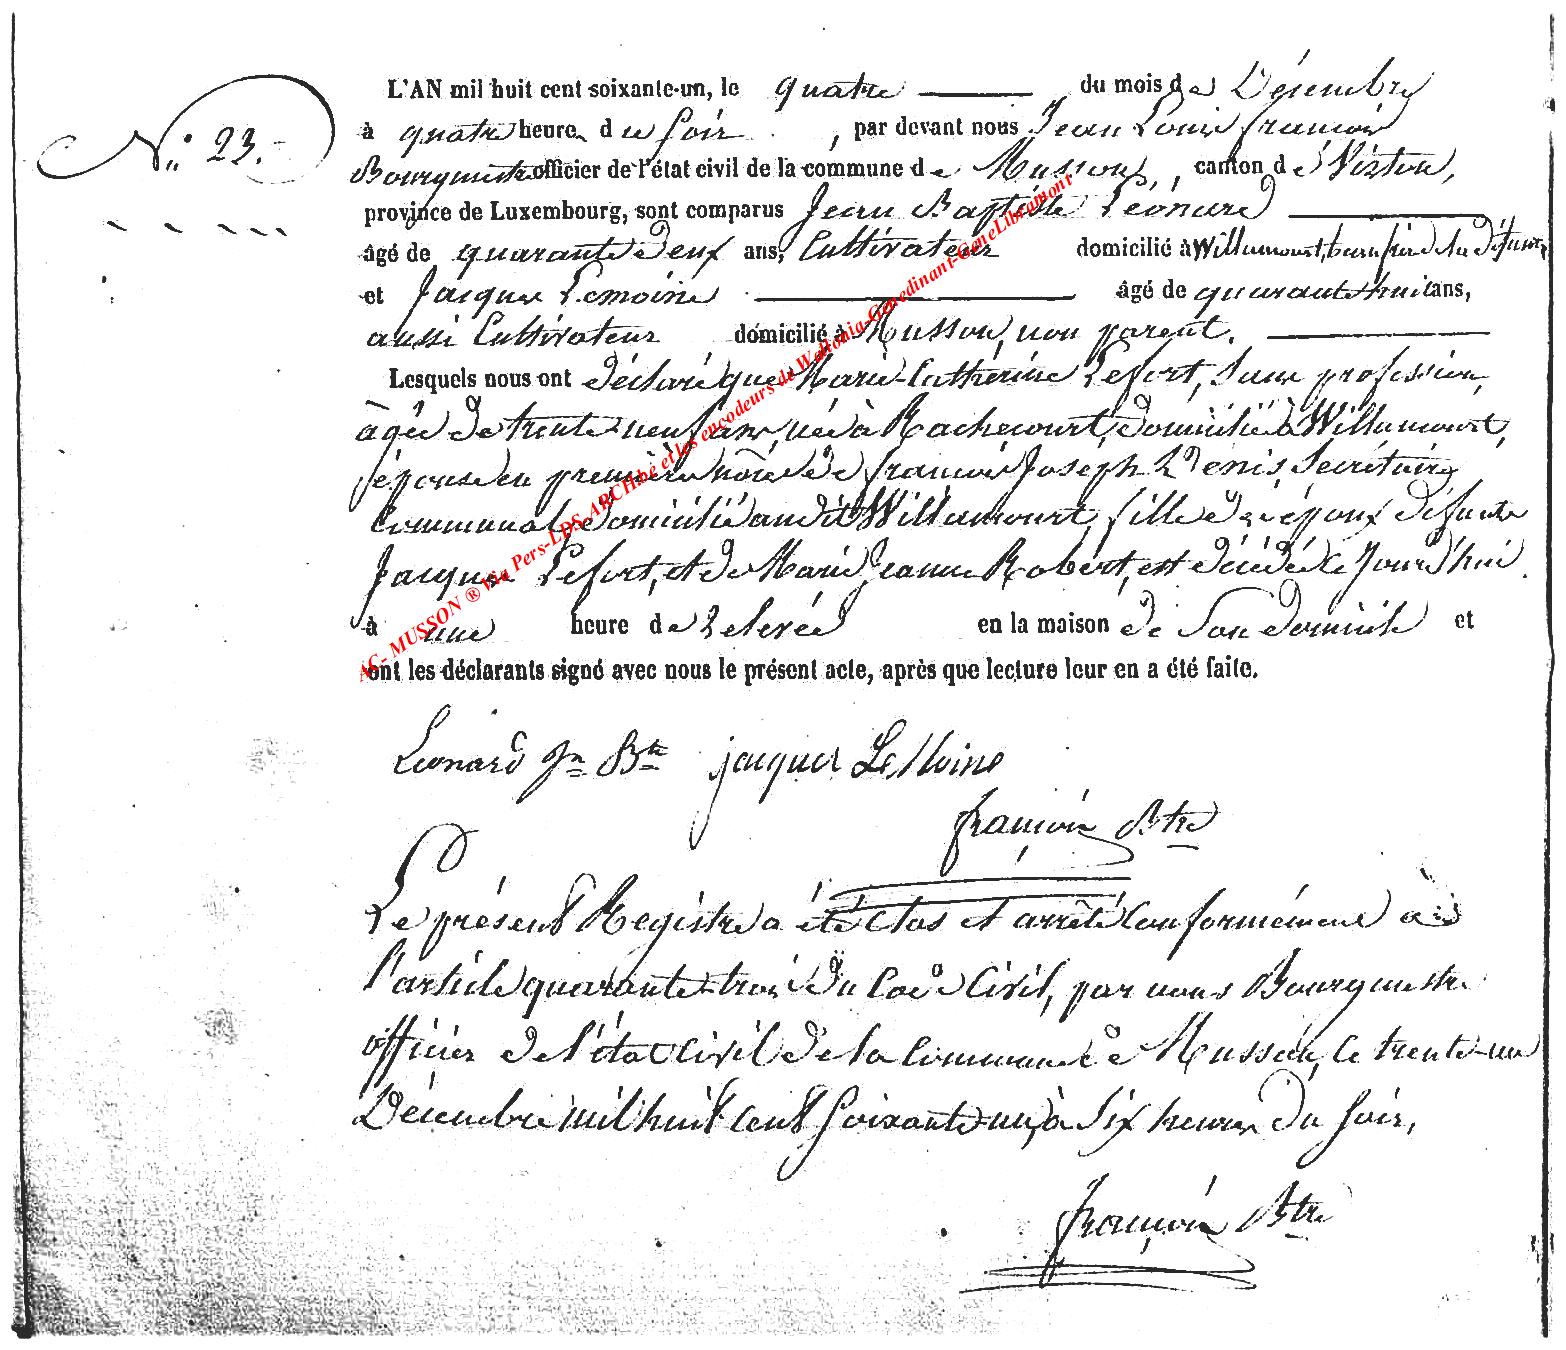 N.° 23.
L'AN mil huit cent soixante-un, le quatre du mois de Décembre
à quatre heure du soir, par devant nous Jean Louis François
Bourgmestre officier de l'état civil de la commune de Musson, canton de Virton,
province de Luxembourg, sont comparus Jean Baptiste Léonard
âgé de quarante deux ans, Cultivateur domicilié à Willancourt, beau frère de la défunte
et Jacques Lemoine âgé de quarante huit ans,
aussi Cultivateur domicilié à Musson, non parent.
Lesquels nous ont déclaré que Marie-Catherine Lefort, sans profession,
âgée de trente-neuf ans, née à Rachecourt, domiciliée à Willancourt,
épouse en première nôce de François Joseph Denis, Secrétaire
Communal domicilié audit Willancourt, fille des époux défunts
Jacques Lefort, et de Marie Jeanne Robert, est décédée ce jourd'hui
à une heure de relevée en la maison de son domicile et
ont les déclarants signé avec nous le présent acte, après que lecture leur en a été faite.
Leonard Jn Bte jacques LeMoine
François Btre
Le présent Registre a été clos et arrêté conformément à
l'article quarante-trois du Code Civil, par nous Bourgmestre
officier de l'état civil de la commune de Musson, ce trente-un
Décembre mil huit cent soixante-un, à six heures du soir,
François Btre
AC- MUSSON ® Via Pers-LDS-ARCH.be et les encodeurs de Wallonia-Genedinant-GeneLibramont